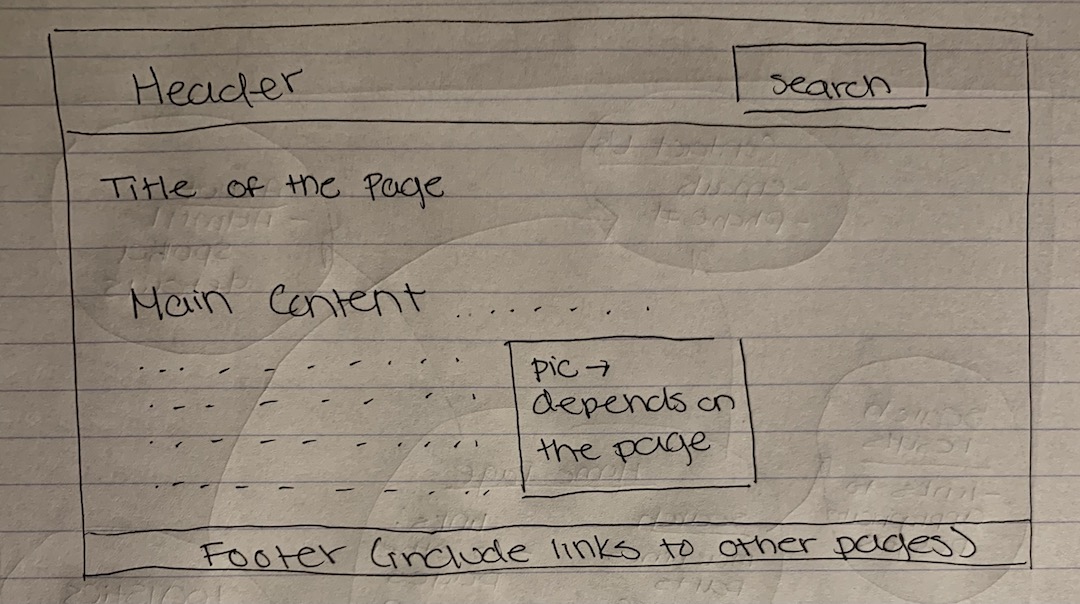 Header
search
Title of the Page
Main Content .........
pic →
depends on
the page
Footer (include links to other pages)